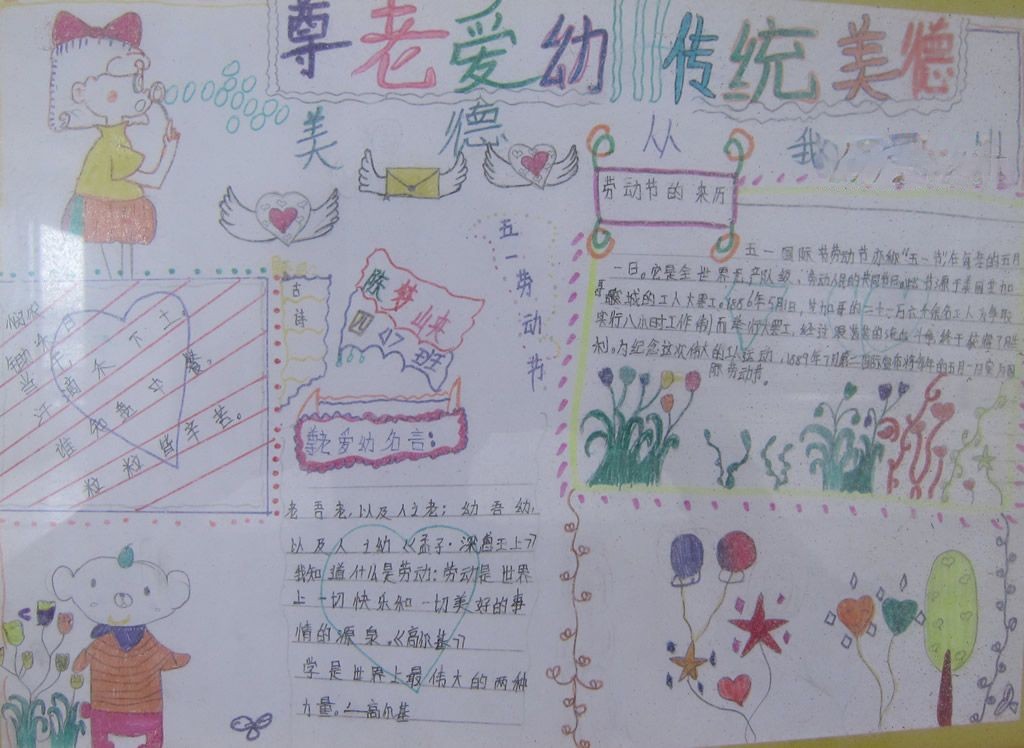 尊老爱幼 传统美德
美 德 从 我
劳动节的来历
五一国际劳动节亦称"五一节"在每年的五月
一日。它是全世界无产队级、劳动人民的共同节日
哥城的工人大罢工。1886年5月1日,芝加哥的二十一万六千余名工人为争取
实行八小时工作制而举行大罢工,经过艰苦的流血斗争,终于获得了胜
利。为纪念这次伟大的工人运动,1889年7月第二国际宣布将每年的五月一日定为国
际劳动节。
五一劳动节
古诗
陈梦
四<4>班
锄禾日
当午
汗滴禾下土。
谁知盘中餐,
粒粒皆辛苦。
尊老爱幼名言:
老吾老,以及人之老;幼吾幼,
以及人之幼《孟子·梁惠王上》
我知道什么是劳动:劳动是世界
上一切快乐和一切美好的事
情的源泉。《高尔基》
学是世界上最伟大的两种
力量。——高尔基